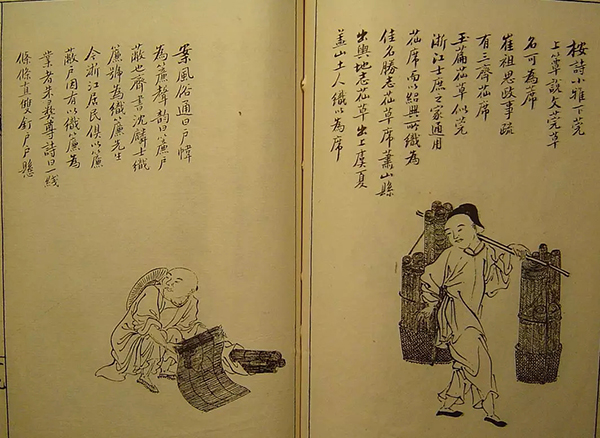 按詩小雅下莞
上簟說文莞草
名可為席
崔祖思政事疏
有三齊苮席
玉篇苮草似莞
浙江士庶之家通用
苮席而以紹興所織為
佳名勝志苮草席蕭山縣
出輿地志苮草出上虞夏
盖山土人織以為席
案風俗通曰戶幃
為簾聲類曰簾戶
蔽也齊書沈麟士織
簾號為織簾先生
今浙江居民俱以簾
蔽戶因有以織簾為
業者朱彝尊詩曰一线
條條直雙釘戶戶懸